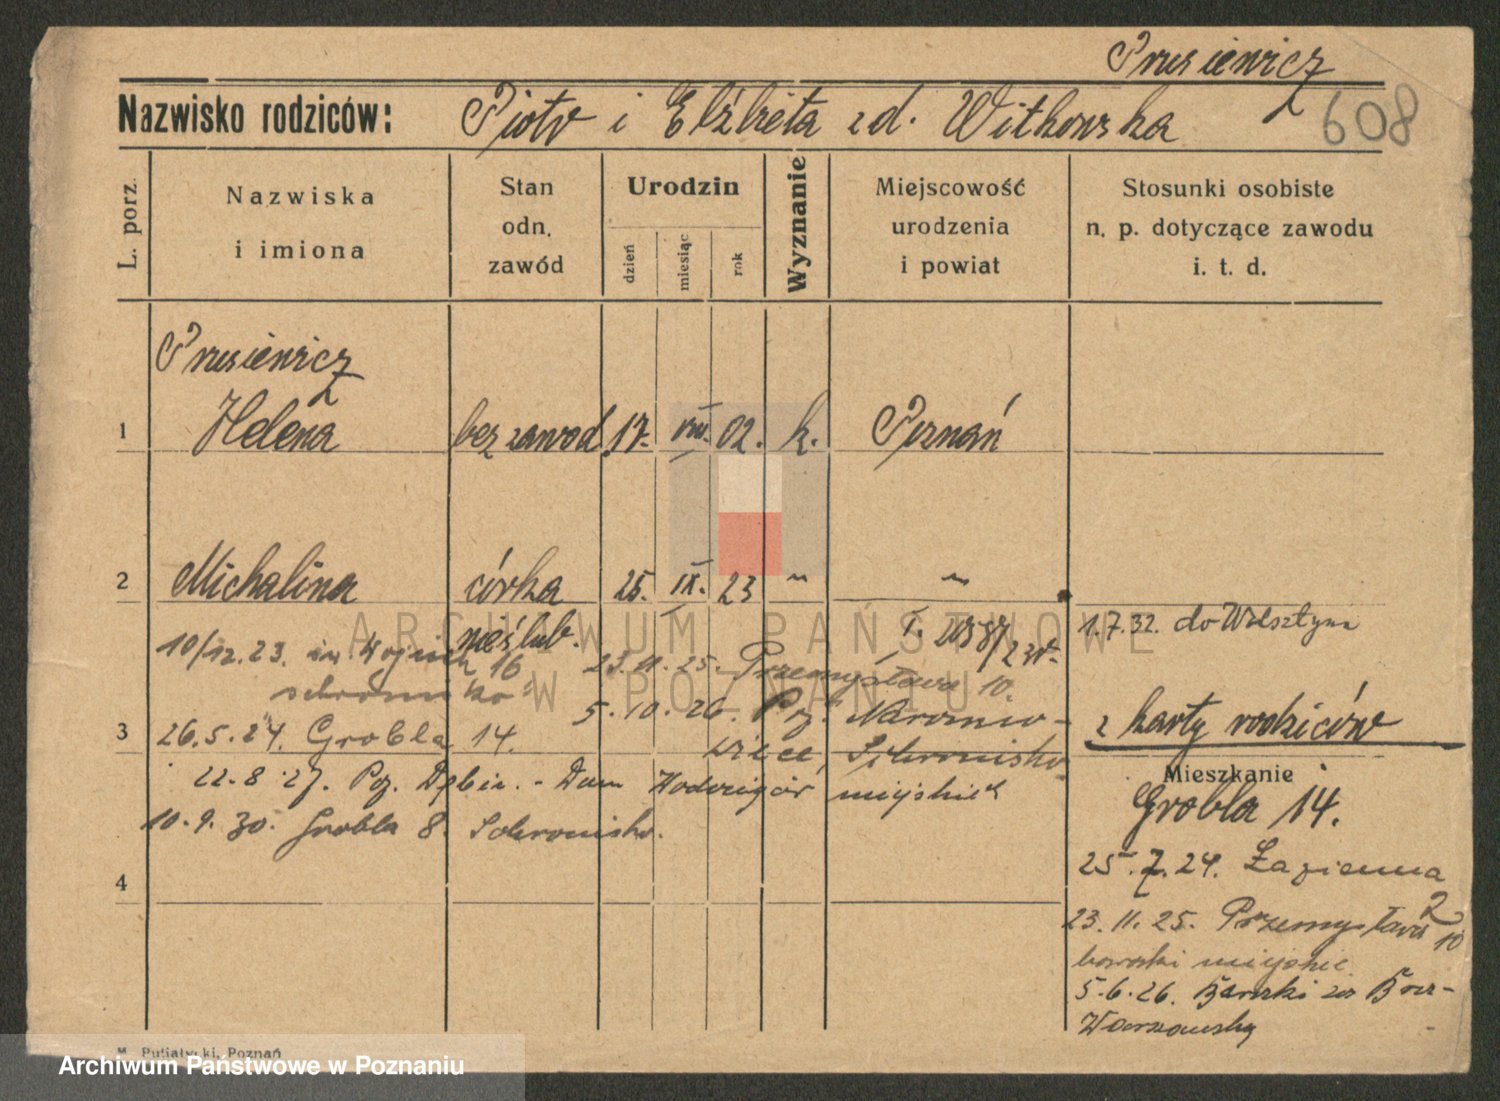 Prusiewicz
608
Nazwisko rodziców: Piotr i Elżbieta zd. Witkowska
L. porz.
Nazwiska i imiona
Stan odn. zawód
Urodzin
dzień
miesiąc
rok
Wyznanie
Miejscowość urodzenia i powiat
Stosunki osobiste n. p. dotyczące zawodu i. t. d.
Prusiewicz
1 Helena bez zawod. 17. VIII. 02. k. Poznań
2 Michalina córka 25. IX. 23 " "
nieślub.
1.7.32. do Wolsztyna
10/12.23. 16
23.11.25. Przemysława 10.
5.10.26. Poz.
z karty rodziców
3 26.5.24. Grobla 14.
Schronisko
22.8.27. Poz. Dębin. - Dom miejskie
10.9.30. Grobla 8. Schronisko.
Mieszkanie
Grobla 14.
25.7.24. Łazienna 2
23.11.25. Przemysława 10
baraki miejskie
5.6.26. Baraki za Bra-
Warszawską
4
M. Putiatycki, Poznań
ARCHIWUM PAŃSTWOWE
W POZNANIU
Archiwum Państwowe w Poznaniu